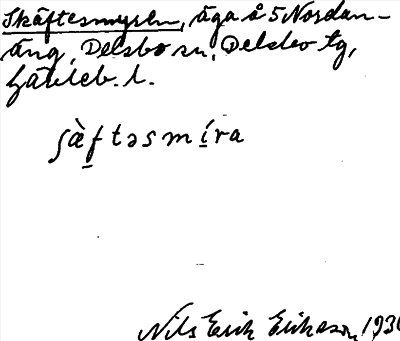 Skäftesmyren, äga å 5 Nordan-
äng, Delsbo sn, Delsbo tg,
Gävleb. l.
ʃæ̀ftəsmíra
Nils Erik Eriksson, 1930